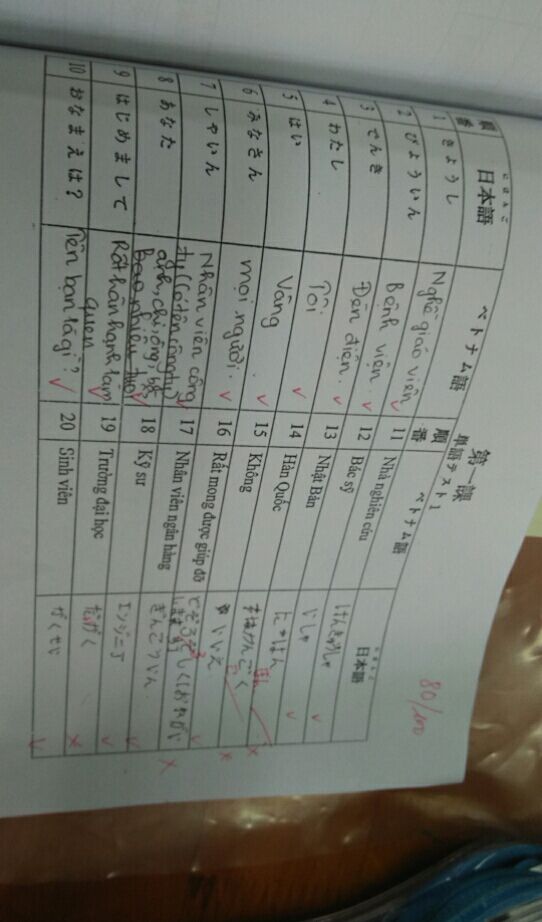 第 課
単語テスト1
80/100
順番 日本語 ベトナム語
にほんご
1 きょうし Nghề giáo viên
2 びょういん Bệnh viện
3 でんき Đèn điện.
4 わたし Tôi
5 はい Vâng
6 みなさん mọi người.
7 しゃいん Nhân viên công ty (có tên công ty)
8 あなた anh, chị, ông, bà
9 はじめまして Rất hân hạnh làm quen
10 おなまえは? Tên bạn là gì?
順番 ベトナム語 日本語
にほんご
11 Nhà nghiên cứu けんきゅうしゃ
12 Bác sỹ いしゃ
13 Nhật Bản にほん
14 Hàn Quốc かんごく
15 Không いいえ
16 Rất mong được giúp đỡ
17 Nhân viên ngân hàng ぎんこういん.
18 Kỹ sư エンジニア
19 Trường đại học だいがく
20 Sinh viên がくせい